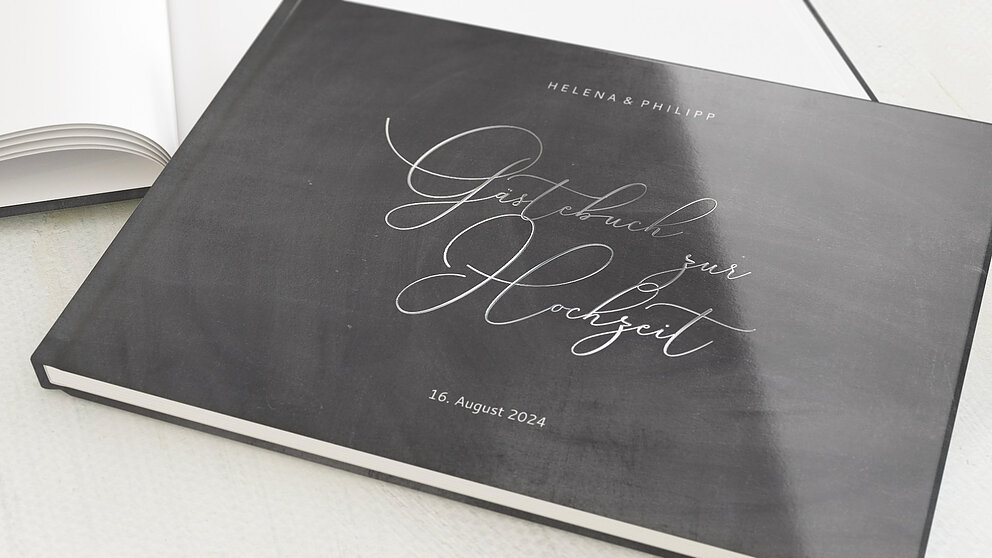 HELENA & PHILIPP
Gästebuch
zur
Hochzeit
16. August 2024